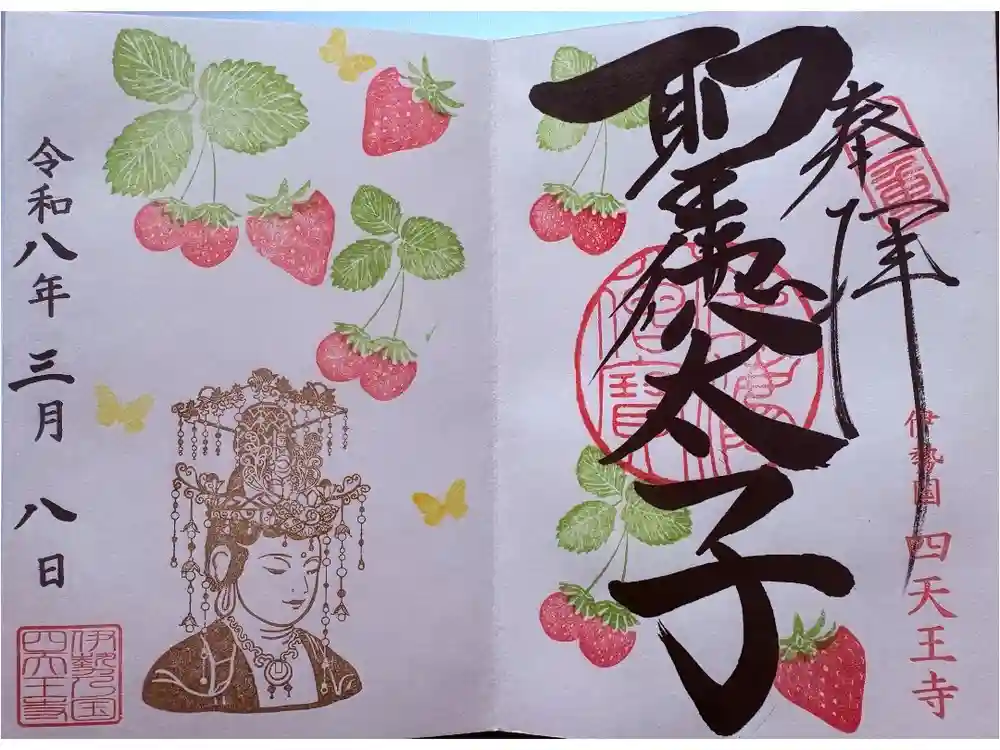 奉拝
聖徳太子
伊勢国 四天王寺
令和八年 三月 八日
伊勢之国
四天王寺